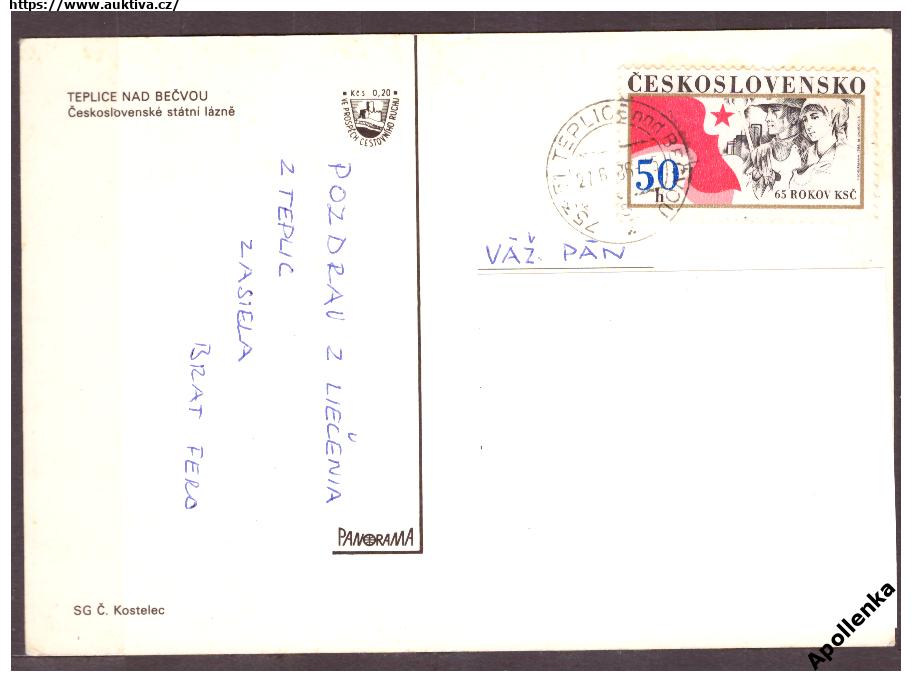 https://www.auktiva.cz/
TEPLICE NAD BEČVOU
Československé státní lázně
Kčs 0,20
VE PROSPĚCH CESTOVNÍHO RUCHU
ČESKOSLOVENSKO
50
h
65 ROKOV KSČ
TEPLICE nad BEČVOU
VÁŽ. PÁN
POZDRAV Z LIEČENIA
Z TEPLIC
ZASIELA
BRAT FERO
PANORAMA
SG Č. Kostelec
Apollenka